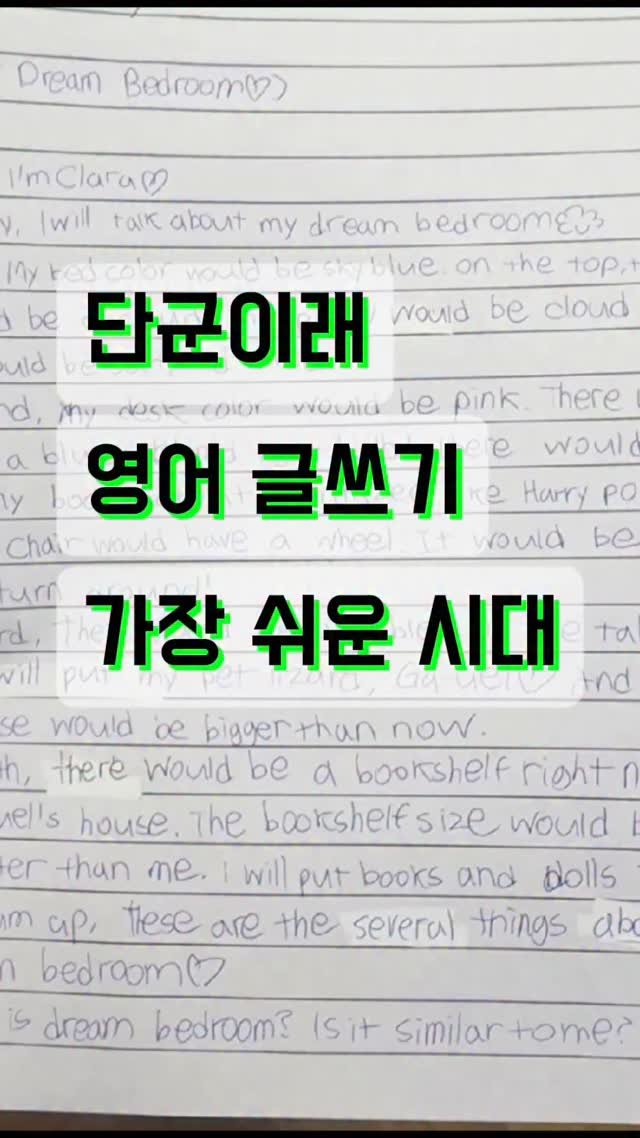 Dream Bedroom♡)
I'm Clara♡
I will talk about my dream bedroom
My bed color would be sky blue. on the top, t
단군이래
d be would be cloud
ould be
nd, my desk color would be pink. There
영어 글쓰기
a bl ere would
my bo ke Harry Po
chair would have a wheel. It would be
turn around!
가장 쉬운 시대
rd, the e tal
will put my pet lizard, Ga-uel♡ And
se would be bigger than now.
th, there would be a bookshelf right n
uel's house. The bookshelf size would b
ter than me. I will put books and dolls
um up, these are the several things abo
n bedroom♡
is dream bedroom? Is it similar to me?